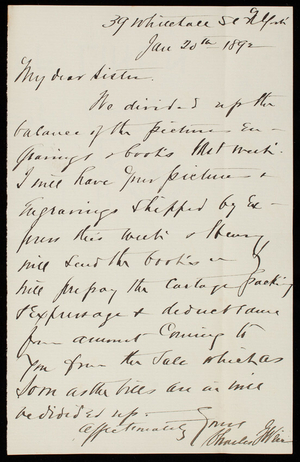 39 Whitehall St N York
Jan 20th 1892
My dear Sister
We divided up the
balance of the pictures En-
gravings & books that week.
I will have your pictures &
Engravings shipped by Ex-
press this week & Henry
will send the books
will prepay the cartage packing
& Expressage & deduct same
from amount Coming to
you from the Sale which as
soon as the bills are in will
be divided up.
affectionately Yours
Charles